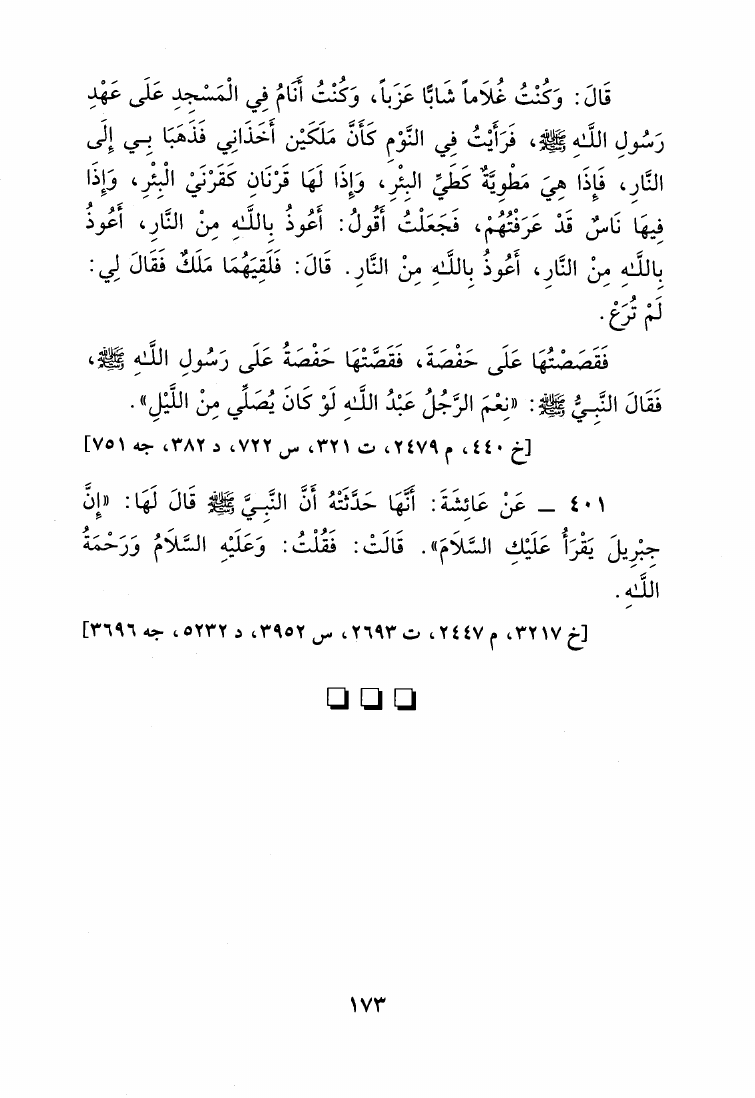 قَالَ: وَكُنْتُ غُلَاماً شَابًّا عَزَباً، وَكُنْتُ أَنَامُ فِي الْمَسْجِدِ عَلَى عَهْدِ
رَسُولِ اللَّـهِ ﷺ، فَرَأَيْتُ فِي النَّوْمِ كَأَنَّ مَلَكَيْنِ أَخَذَانِي فَذَهَبَا بِـي إِلَى
النَّارِ، فَإِذَا هِيَ مَطْوِيَّةٌ كَطَيِّ البِئْرِ، وَإِذَا لَهَا قَرْنَانِ كَقَرْنَيْ الْبِئْرِ، وَإِذَا
فِيهَا نَاسٌ قَدْ عَرَفْتُهُمْ، فَجَعَلْتُ أَقُولُ: أَعُوذُ بِاللَّـهِ مِنْ النَّارِ، أَعُوذُ
بِاللَّـهِ مِنْ النَّارِ، أَعُوذُ بِاللَّـهِ مِنْ النَّارِ. قَالَ: فَلَقِيَهُمَا مَلَكٌ فَقَالَ لِي:
لَمْ تُرَعْ.
فَقَصَصْتُهَا عَلَى حَفْصَةَ، فَقَصَّتْهَا حَفْصَةُ عَلَى رَسُولِ اللَّـهِ ﷺ،
فَقَالَ النَّبِـيُّ ﷺ: «نِعْمَ الرَّجُلُ عَبْدُ اللَّـهِ لَوْ كَانَ يُصَلِّي مِنْ اللَّيْلِ».
[خ ٤٤٠، م ٢٤٧٩، ت ٣٢١، س ٧٢٢، د ٣٨٢، جه ٧٥١]
٤٠١ ـ عَنْ عَائِشَةَ: أَنَّهَا حَدَّثَتْهُ أَنَّ النَّبِـيَّ ﷺ قَالَ لَهَا: «إِنَّ
جِبْرِيلَ يَقْرَأُ عَلَيْكِ السَّلَامَ». قَالَتْ: فَقُلْتُ: وَعَلَيْهِ السَّلَامُ وَرَحْمَةُ
اللَّـهِ.
[خ ٣٢١٧، م ٢٤٤٧، ت ٢٦٩٣، س ٣٩٥٢، د ٥٢٣٢، جه ٣٦٩٦]
١٧٣